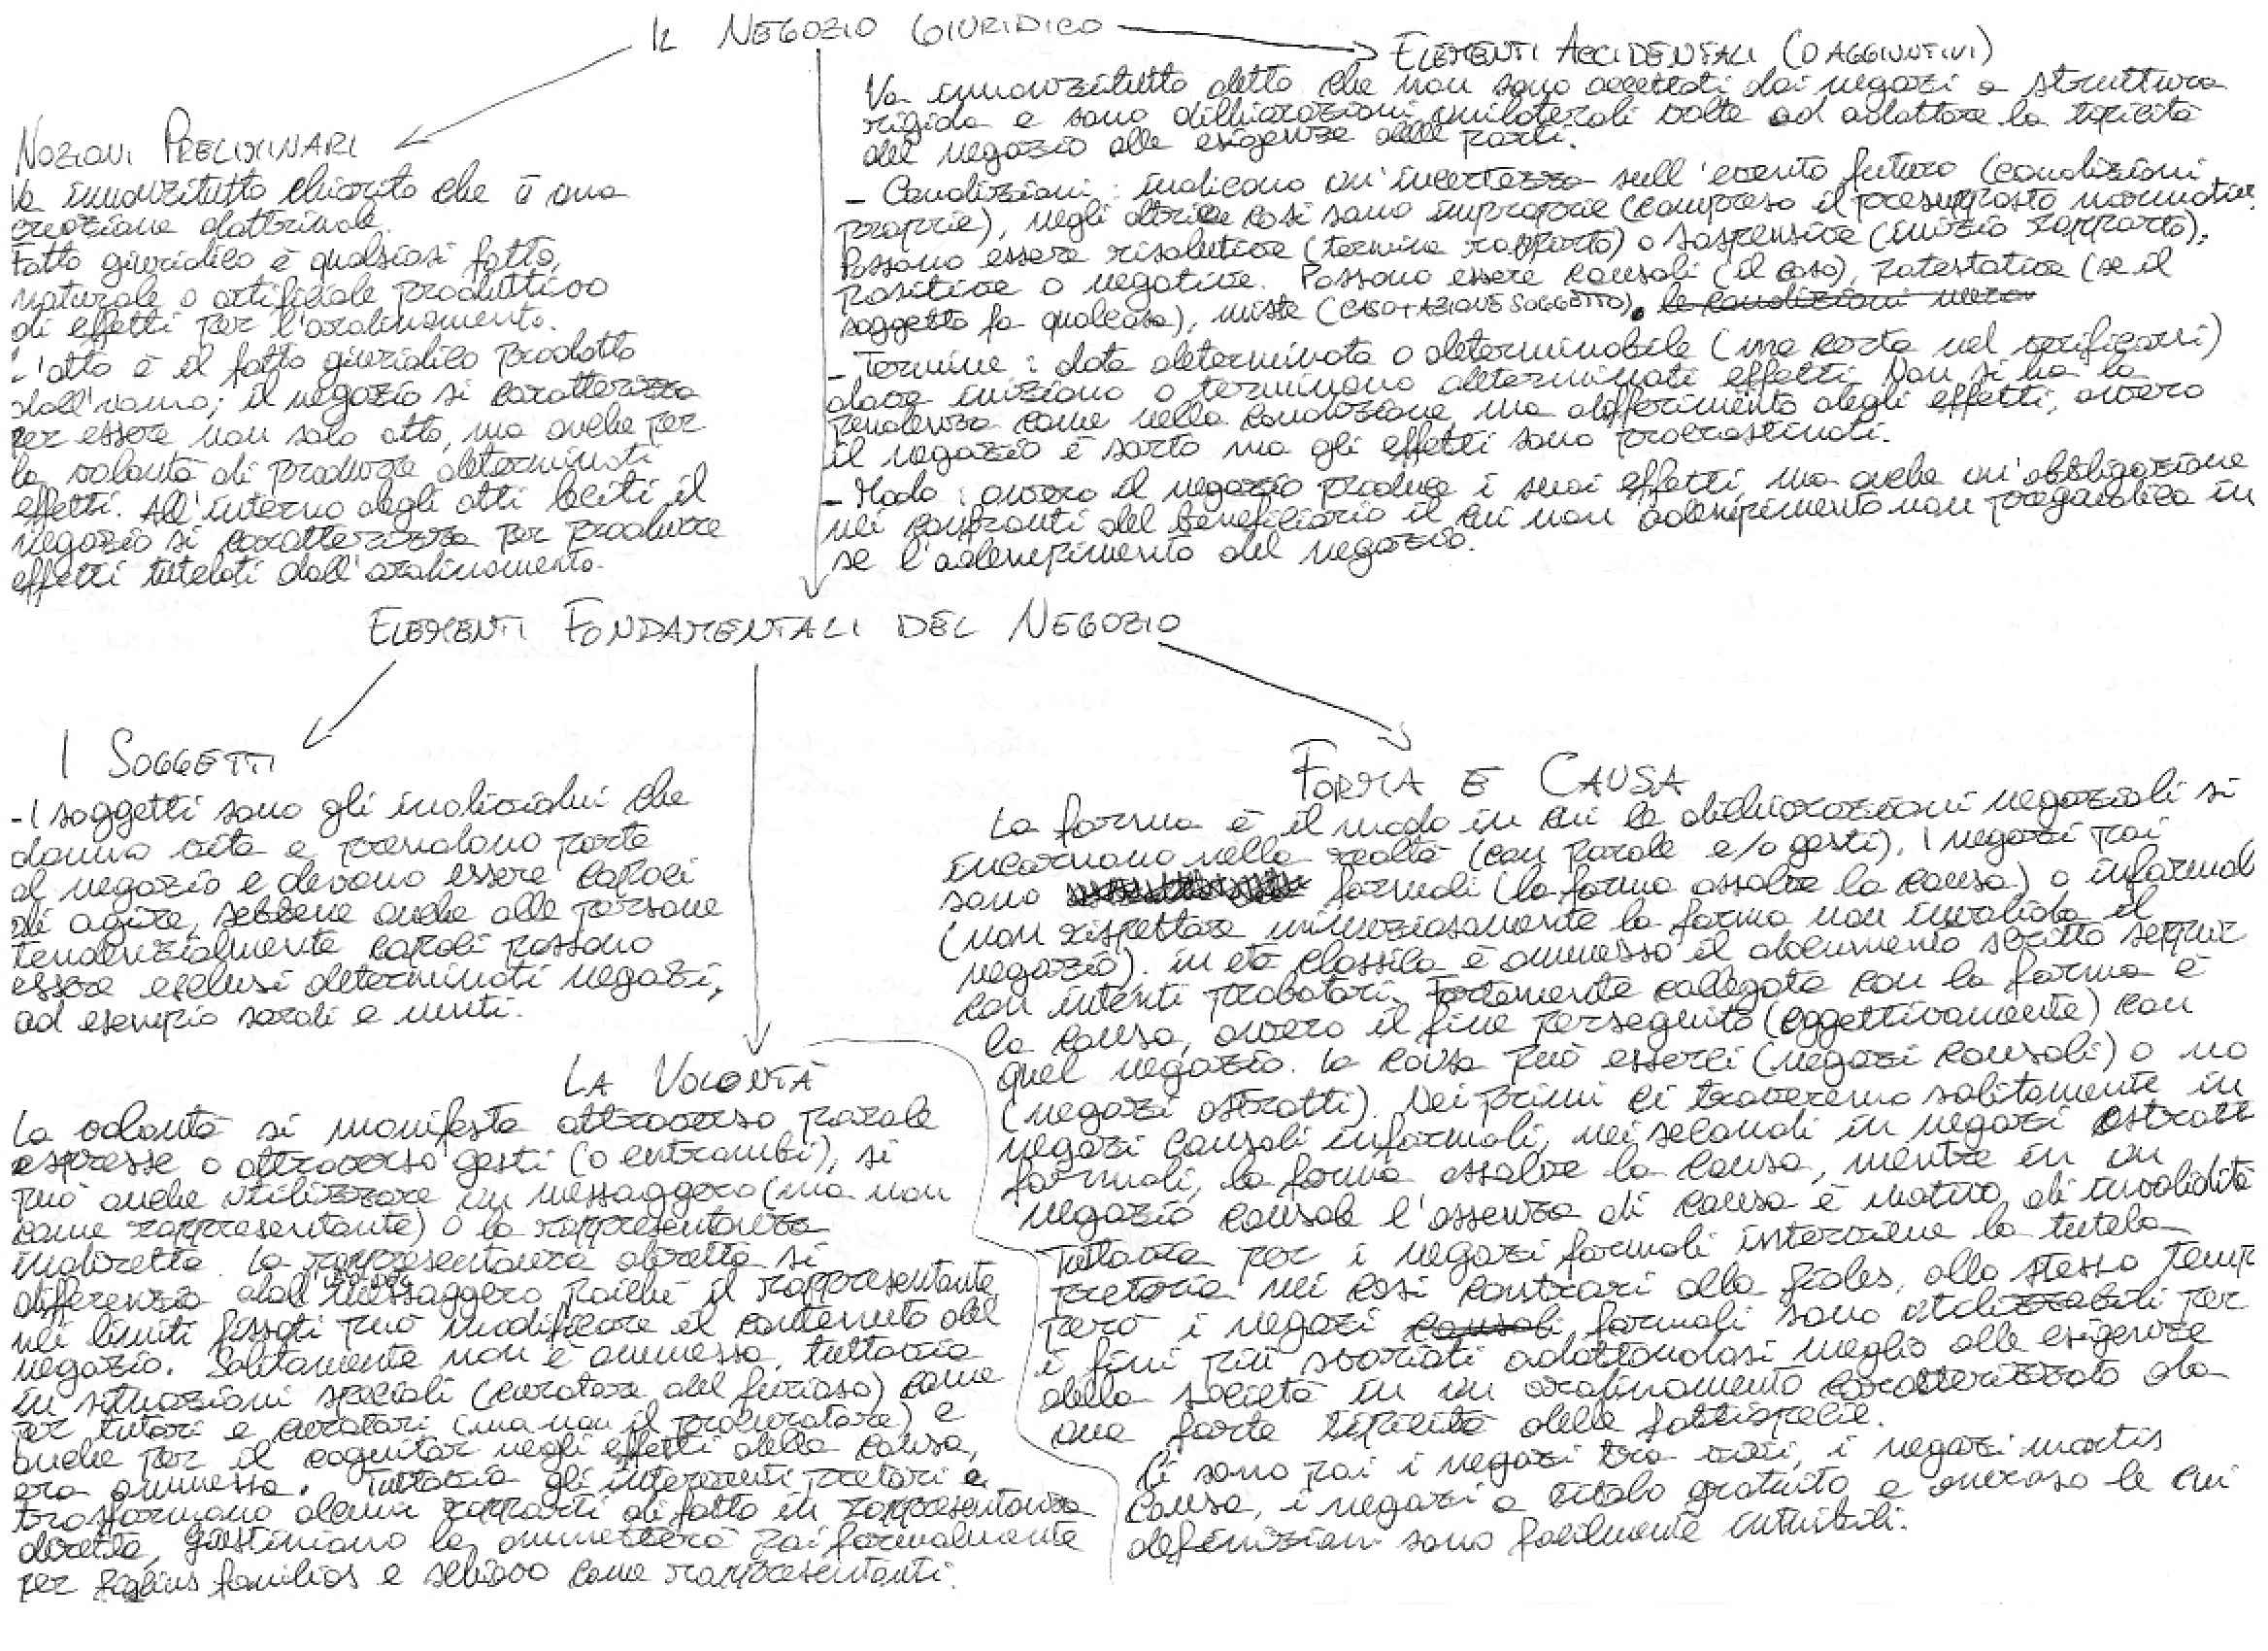 IL NEGOZIO GIURIDICO
NOZIONI PRELIMINARI
Va innanzitutto chiarito che è una
creazione dottrinale.
Fatto giuridico è qualsiasi fatto,
naturale o artificiale produttivo
di effetti per l'ordinamento.
L'atto è il fatto giuridico prodotto
dall'uomo; il negozio si caratterizza
per essere non solo atto, ma anche per
la volontà di produrre determinati
effetti. All'interno degli atti leciti il
negozio si caratterizza per produrre
effetti tutelati dall'ordinamento.
ELEMENTI ACCIDENTALI (O AGGIUNTIVI)
Va innanzitutto detto che non sono accettati dai negozi a struttura
rigida e sono dichiarazioni unilaterali volte ad adattare la tipicità
del negozio alle esigenze delle parti.
- Condizioni: indicano un'incertezza sull'evento futuro (condizioni
proprie), negli altri casi sono improprie (compreso il presupposto normativo).
Possono essere risolutive (termine rapporto) o sospensive (inizio rapporto),
positive o negative. Possono essere causali (il caso), potestative (se il
soggetto fa qualcosa), miste (CASO+AZIONE SOGGETTO). le condizioni mera
- Termine: data determinata o determinabile (ma certa nel verificarsi)
dove iniziano o terminano determinati effetti. Non si ha la
pendenza come nella condizione, ma differimento degli effetti, ovvero
il negozio è sorto ma gli effetti sono procrastinati.
- Modo: ovvero il negozio produce i suoi effetti, ma anche un'obbligazione
nei confronti del beneficiario il cui non adempimento non pregiudica in
se l'adempimento del negozio.
ELEMENTI FONDAMENTALI DEL NEGOZIO
I SOGGETTI
- I soggetti sono gli individui che
danno vita e prendono parte
al negozio e devono essere capaci
di agire, sebbene anche alle persone
tendenzialmente capaci possono
essere esclusi determinati negozi,
ad esempio sordi e muti.
LA VOLONTÀ
La volontà si manifesta attraverso parole
espresse o attraverso gesti (o entrambi), si
può anche utilizzare un messaggero (ma non
come rappresentante) o la rappresentanza
indiretta. La rappresentanza diretta si
differenzia dal messaggero poiché il rappresentante
nei limiti fissati può modificare il contenuto del
negozio. Solitamente non è ammessa, tuttavia
in situazioni speciali (curatore del furioso) come
per tutori e curatori (ma non il procuratore) e
anche per il cognitor negli effetti della causa,
era ammessa. Tuttavia gli interventi pretori
trasformano alcuni rapporti di fatto in rappresentanza
diretta, Giustiniano la ammetterà poi formalmente
per filius familias e schiavo come rappresentanti.
FORMA E CAUSA
La forma è il modo in cui le dichiarazioni negoziali si
incarnano nella realtà (con parole e/o gesti). I negozi poi
sono formali (la forma assolve la causa) o informali
(non rispettare minuziosamente la forma non invalida il
negozio). in età classica è ammesso il documento scritto seppur
con intenti probatori. Fortemente collegata con la forma è
la causa, ovvero il fine perseguito (oggettivamente) con
quel negozio. la causa può esserci (negozi causali) o no
(negozi astratti). Nei primi ci troveremo solitamente in
negozi causali informali, nei secondi in negozi astratti
formali, la forma assolve la causa, mentre in un
negozio causale l'assenza di causa è motivo di invalidità
Tuttavia per i negozi formali interviene la tutela
pretoria nei casi contrari alla fides, allo stesso temp
però i negozi causali formali sono utilizzabili per
i fini più svariati adattandosi meglio alle esigenze
della società in un ordinamento caratterizzato da
una forte tipicità delle fattispecie.
Ci sono poi i negozi tra vivi, i negozi mortis
causa, i negozi a titolo gratuito e oneroso le cui
definizioni sono facilmente intuibili.